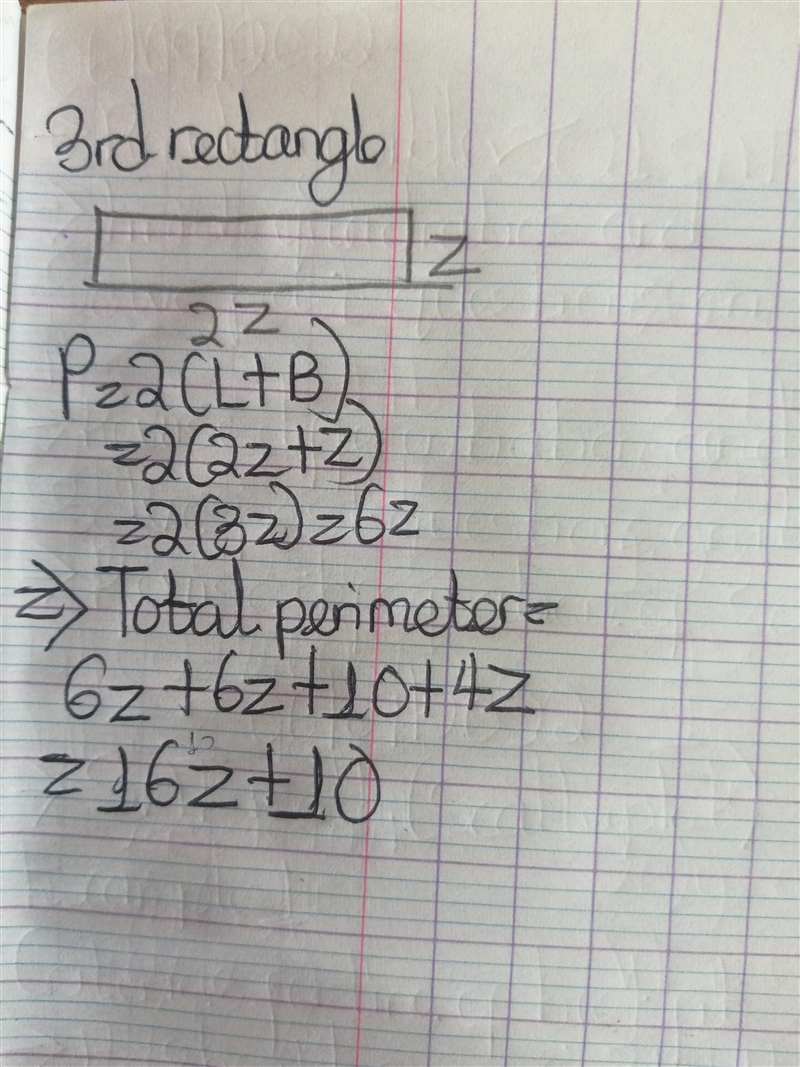 3rd rectangle
z
2z
P=2(L+B)
=2(2z+z)
=2(3z)=6z
=> Total perimeter=
6z+6z+10+4z
=16z+10